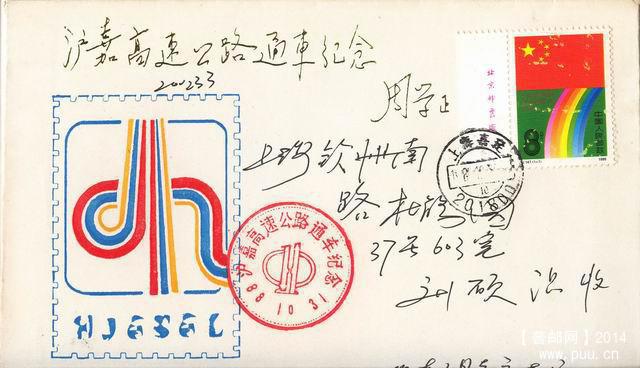 沪嘉高速公路通車纪念
200233
周学正
上海钦州南
路
37号603室
刘硕 收
北京邮票厂
中国人民邮政
8分
1988
上海嘉定
201800
沪嘉高速公路通车纪念
88 10 31
HJESEL
【醫邮网】2014
www.puu.cn